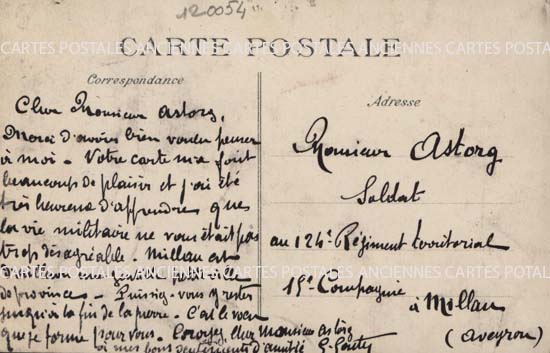 120054
CARTES POSTALES ANCIENNES CARTES POSTALES ANCIENNES
CARTE POSTALE
Correspondance
Cher Monsieur Astorg,
Merci d'avoir bien voulu penser
à moi - Votre carte m'a fait
beaucoup de plaisir et j'ai été
très heureux d'apprendre que
la vie militaire ne vous était pas
trop désagréable. Millau est
une gentille petite ville
de province - Puissiez-vous y rester
jusqu'à la fin de la guerre. C'est le vœu
que je forme pour vous. Croyez, cher Monsieur Astorg
à mes bons sentiments d'amitié
Adresse
Monsieur Astorg
Soldat
au 124e Régiment territorial
15e Compagnie
à Millau
(Aveyron)